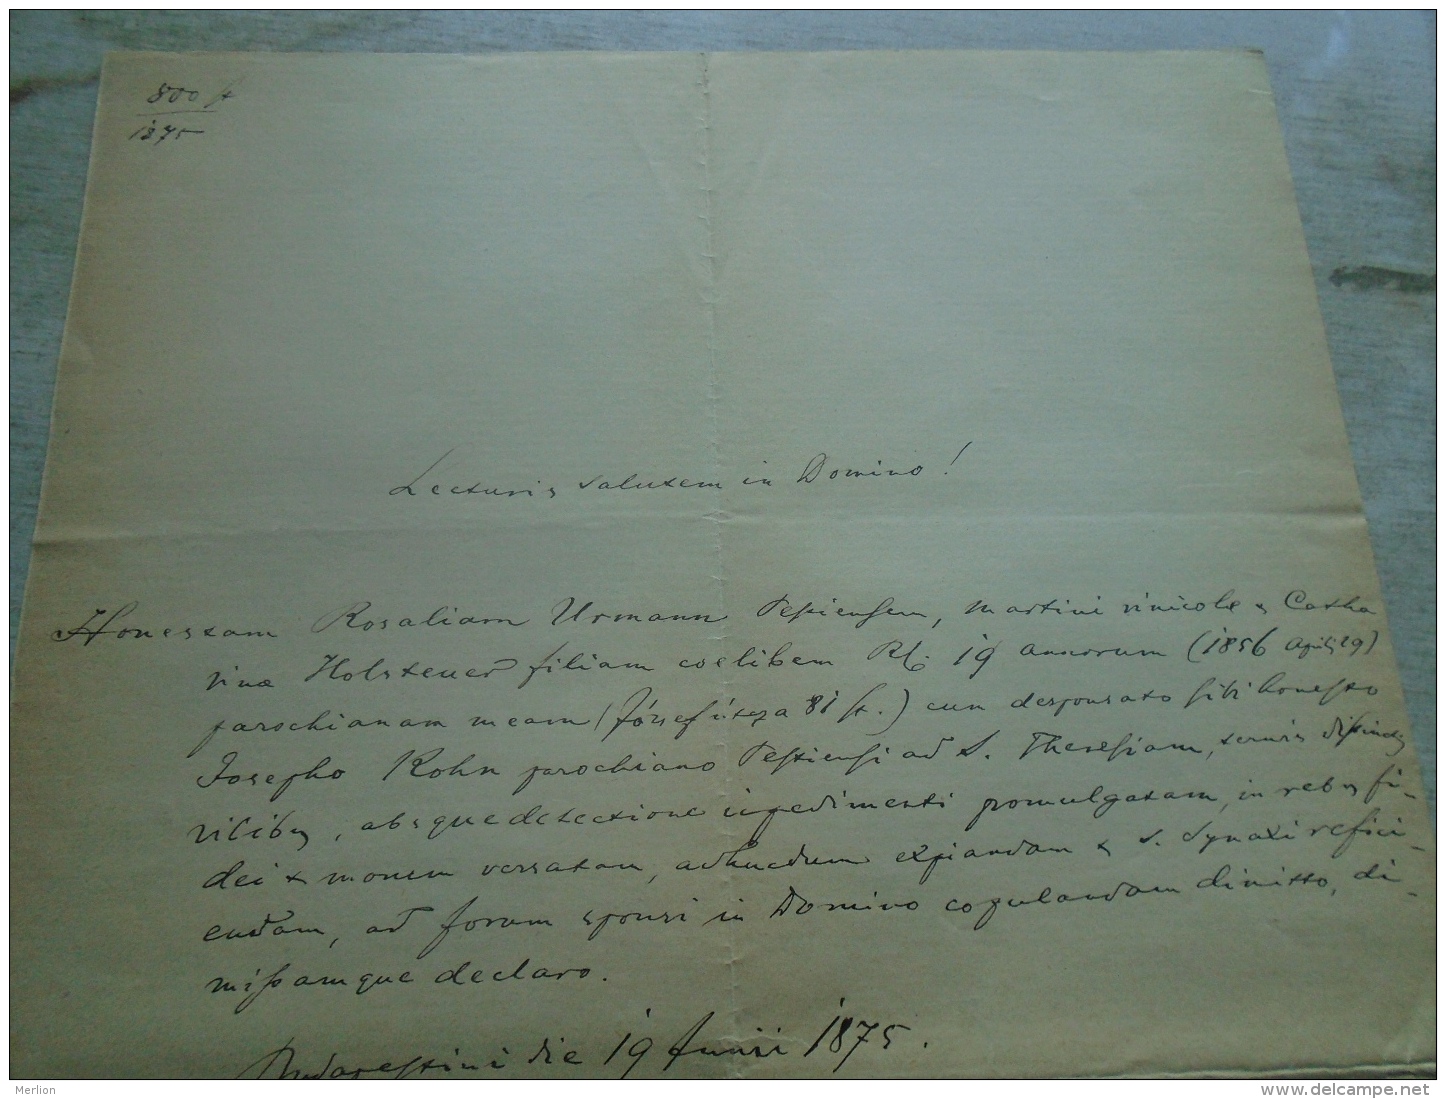 800 St
1875
Lecturis salutem in Domino!
Honestam Rosaliam Urmann Pestiensem, Martini vinicolæ & Catha
rinæ Holsteuer filiam coelibem RC. 19 annorum (1856 April 29)
parochianam meam (József útcza 81 st.) cum desponsato sibi honesto
Josepho Kohn parochiano Pestiensi ad S. Theresiam, ternis distinctis
vicibus, absque detectione impedimenti promulgatam, in rebus fi-
dei & morum versatam, adhucdum expiandam & S. Synaxi refici-
endam, ad forum sponsi in Domino copulandam dimitto, di-
missamque declaro.
Budapestini die 19 Junii 1875.
Merlion
www.delcampe.net